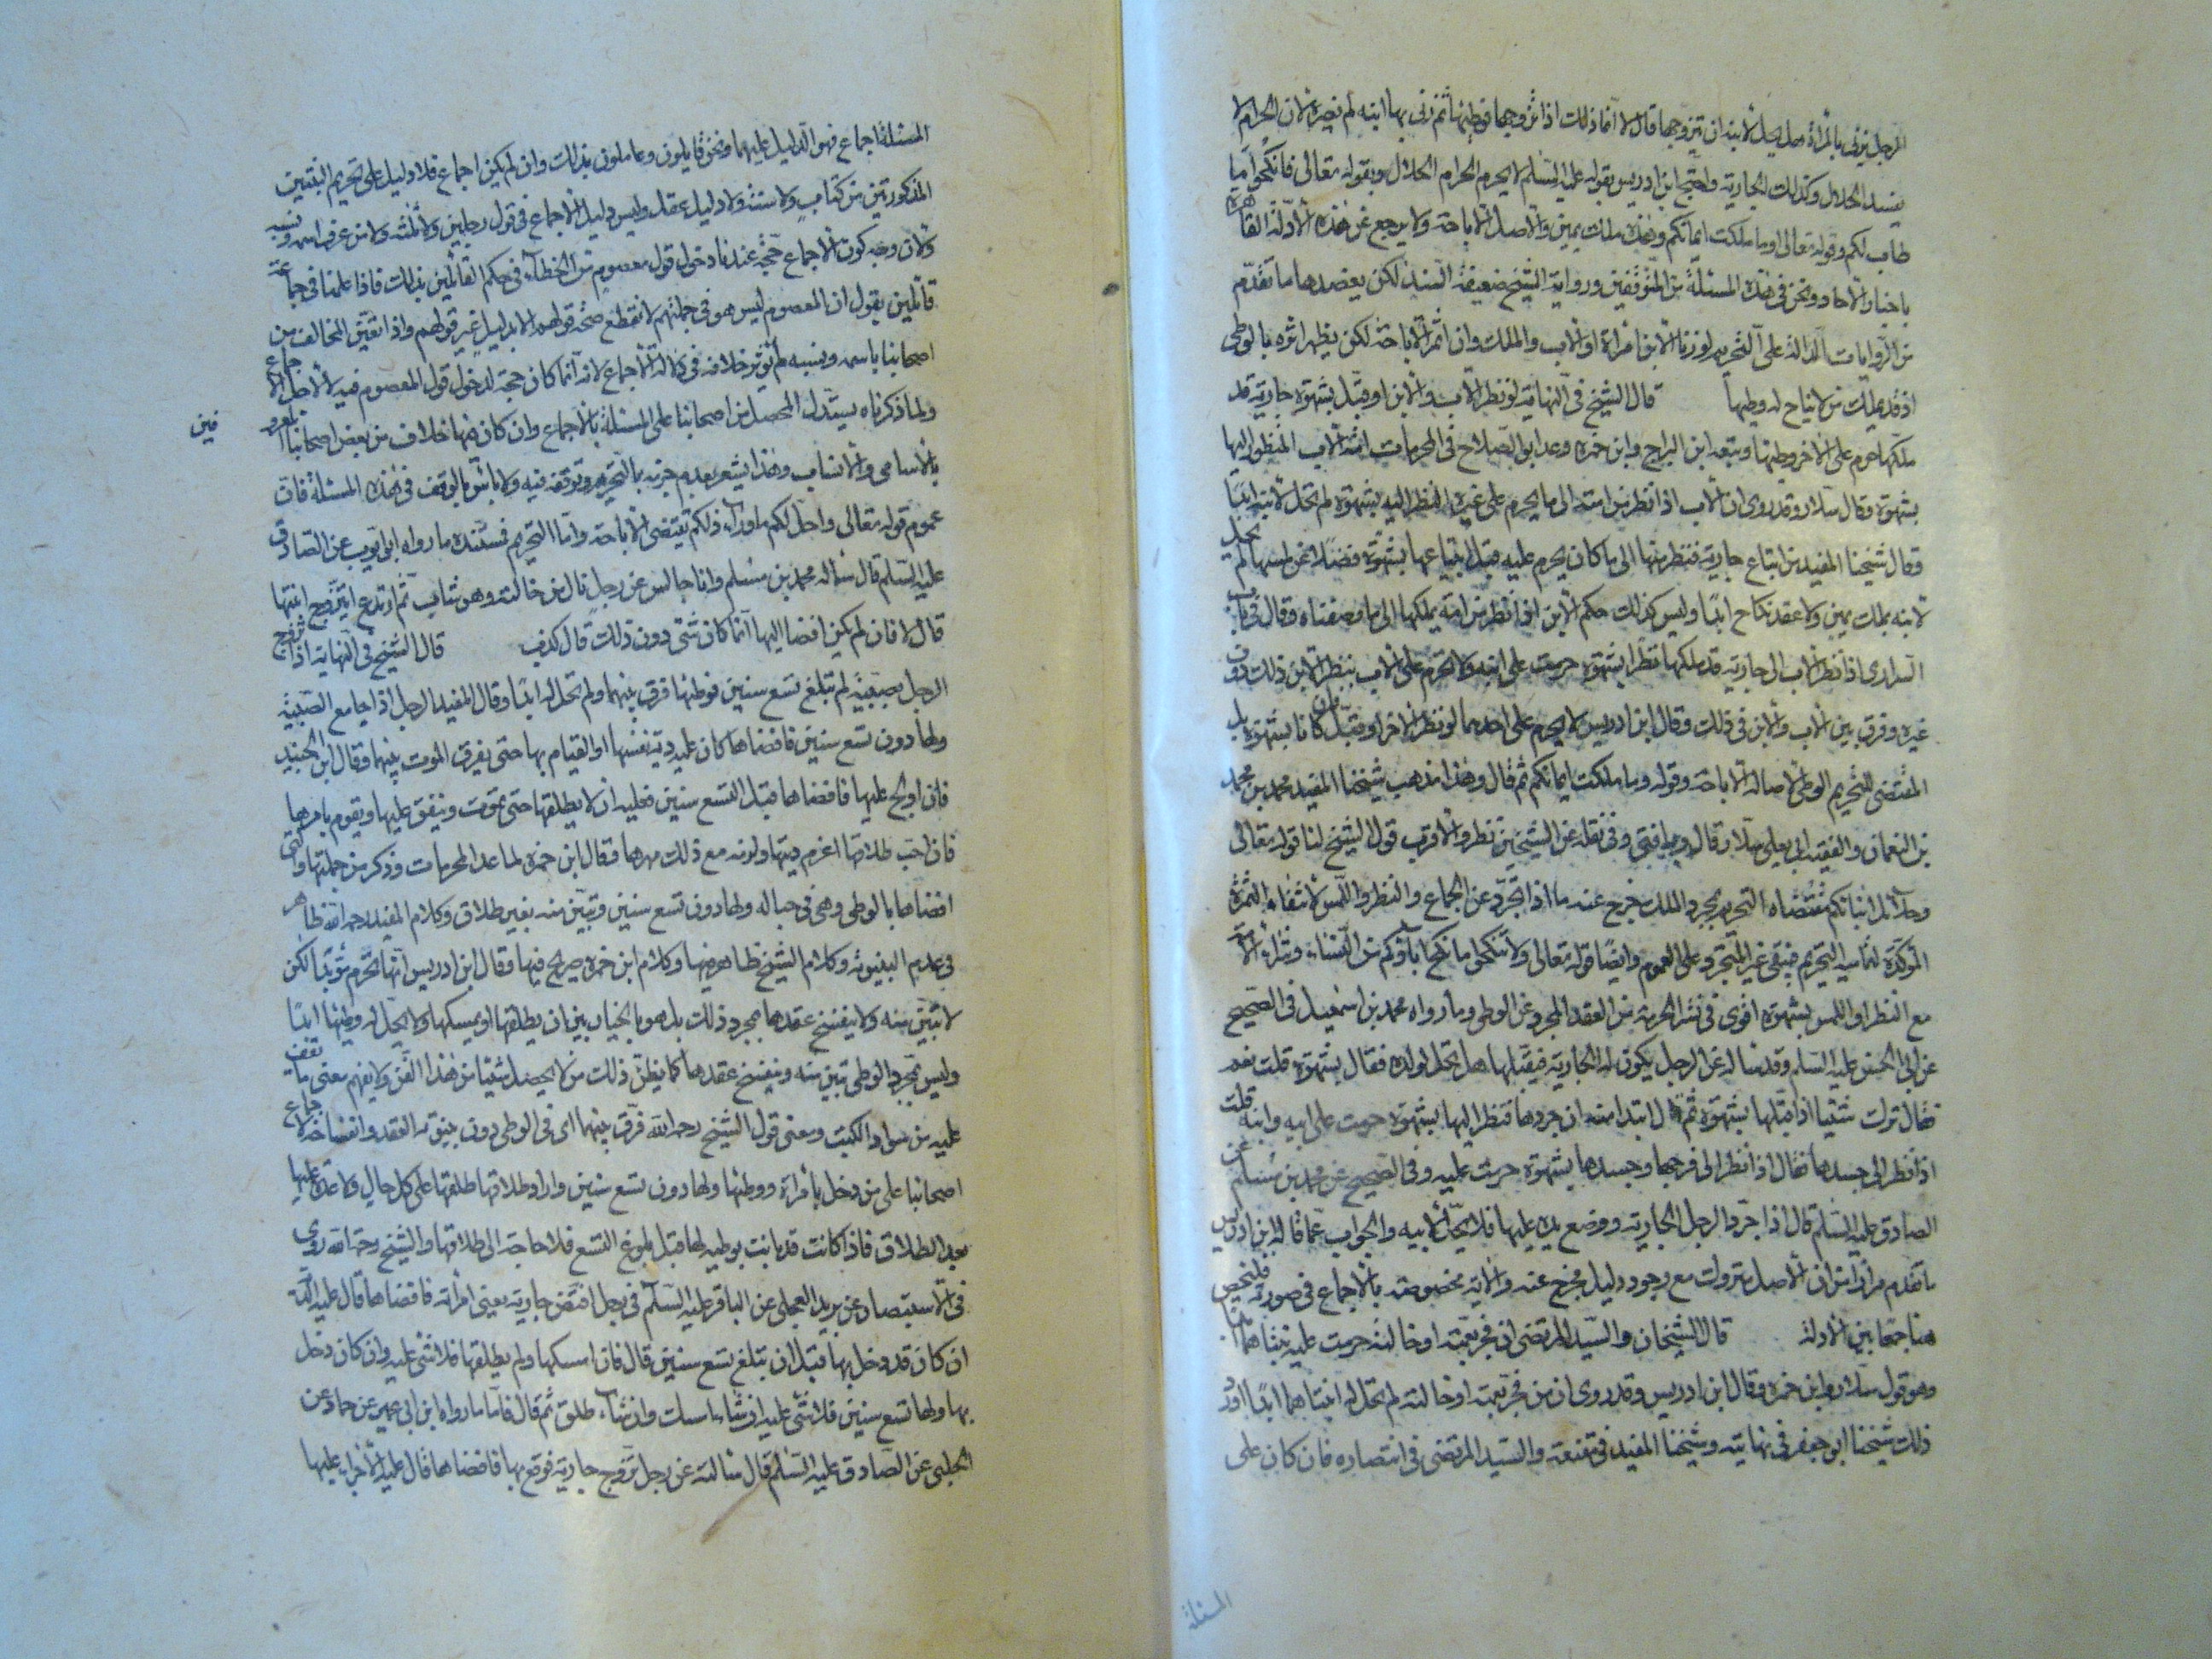 الرجل يزني بالمرأة هل يحل لابنه ان يتزوجها قال لا انما ذلك اذا تزوجها فوطئها ثم زنى بها ابنه لم يضره لان الحرام لا
يفسد الحلال وكذلك الجارية واحتج ابن ادريس بقوله عليه السلم لا يحرم الحرام الحلال وبقوله تعالى فانكحوا ما
طاب لكم وقوله تعالى او ما ملكت ايمانكم وهذه ملك يمين والاصل الاباحة ولا يرجع عن هذه الادلة القاهرة
باخبار الاحاد ونحن في هذه المسئلة من المتوقفين ورواية الشيخ ضعيفة السند لكن يعضدها ما تقدم
من الروايات الدالة على التحريم لو زنا الابن امرأة او الاب والملك وان اثمر الاباحة لكن يظهر اثره بالوطي
اذ قد يملك من لا يباح له وطيها قال الشيخ في النهاية لو نظر الاب والابن او قبل بشهوة جارية قد
ملكها حرم على الاخر وطيها وتبعه ابن البراج وابن حمزه وعد ابو الصلاح في المحرمات امة الاب المنظور اليها
بشهوة وقال سلار وقد روى ان الاب اذا نظر من امته الى ما يحرم على غيره النظر اليه بشهوة لم تحل لابنه ابدا
وقال شيخنا المفيد من ابتاع جارية فنظر منها الى ما كان يحرم عليه قبل ابتياعها بشهوة فضلا عن لمسها لم تحل
لابنه بملك يمين ولا عقد نكاح ابدا وليس كذلك حكم الابن اذا نظر من امة يملكها الى ما وصفناه وقال في باب
السراري اذا نظر الاب الى جارية قد ملكها نظرا بشهوة حرمت على ابنه ولا تحرم على الاب بنظر الابن ذلك دون
غيره وفرق بين الاب والابن في ذلك وقال ابن ادريس لا يحرم على احدهما لو نظر الاخر او قبل وان كانا بشهوة بل
المقتضى للتحريم الوطي لاصالة الاباحة وقوله وما ملكت ايمانكم ثم قال وهذا مذهب شيخنا المفيد محمد بن محمد
بن النعمان والفقيه ابي يعلى سلار قال وبه افتى وفي نقله عن الشيخين نظر والاقرب قول الشيخ لنا قوله تعالى
وحلائل ابنائكم مقتضاه التحريم بمجرد الملك خرج عنه ما اذا تجرد عن الجماع والنظر واللمس لانتفاء الثمرة
المؤكدة لمناسبة التحريم فيبقى غير المتجرد على العموم وايضا قوله تعالى ولا تنكحوا ما نكح آباؤكم من النساء
مع النظر او اللمس بشهوة اقوى في نشر الحرمة من العقد المجرد عن الوطي وما رواه محمد بن اسمعيل في الصحيح
عن ابي الحسن عليه السلم وقد ساله عن الرجل يكون له الجارية فيقبلها هل تحل لولده فقال بشهوة قلت نعم
فقال ما ترك شيئا اذا قبلها بشهوة ثم قال ابتدا منه ان جردها فنظر اليها بشهوة حرمت على ابيه وابنه قلت
اذا نظر الى جسدها فقال اذا نظر الى فرجها وجسدها بشهوة حرمت عليه وفي الصحيح عن محمد بن مسلم عن
الصادق عليه السلم قال اذا جرد الرجل الجارية ووضع يده عليها فلا يحل لابيه والجواب عما قاله ابن ادريس
ما تقدم مرارا من ان الاصل متروك مع وجود دليل مخرج عنه والاية مخصوصة بالاجماع في صور
هنا جمعا بين الادلة قال الشيخان والسيد المرتضى ان فجر بعمته او خالته حرمت عليه بنتاهما
وهو قول سلار وابن حمزه وقال ابن ادريس وقد روى ان من فجر بعمته او خالته لم تحل له ابنتاهما ابدا اورد
ذلك شيخنا ابو جعفر في نهايته وشيخنا المفيد في مقنعته والسيد المرتضى في انتصاره فان كان على
المسئلة
المسئلة اجماع فهو الدليل عليهما ونحن قايلون وعاملون بذلك وان لم يكن اجماع فلا دليل على تحريم البنتين
المذكورتين من كتاب ولا سنة ولا دليل عقل وليس دليل الاجماع في قول رجلين ولا ثلثة ولا من عرف اسمه ونسبه
ولان وجه كون الاجماع حجة عندنا دخول قول معصوم من الخطاء في حكم القائلين بذلك فاذا علمنا في جماعة
قائلين بقول ان المعصوم ليس هو في جملتهم لا نقطع صحة قولهم الا بدليل غير قولهم واذا تعين المخالف من
اصحابنا باسمه ونسبه لم يؤثر خلافه في دلالة الاجماع لانه انما كان حجة لدخول قول المعصوم فيه لا لاجل الاجماع
ولما ذكرناه يستدل المحصل من اصحابنا على المسئلة بالاجماع وان كان فيها خلاف من بعض اصحابنا المعروفين
بالاسامي والانساب وهذا يشعر بعدم جزمه بالتحريم وتوقفه فيه ولا باس بالوقف في هذه المسئلة فان
عموم قوله تعالى واحل لكم ما وراء ذلكم يقتضى الاباحة واما التحريم فمستنده ما رواه ابي ايوب عن الصادق
عليه السلم قال ساله محمد بن مسلم وانا جالس عن رجل نال من خالته وهو شاب ثم ارتدع ايتزوج ابنتها
قال لا فان لم يكن افضا اليها انما كان شئ دون ذلك قال كذب قال الشيخ في النهاية اذا تزوج
الرجل بصبية لم تبلغ تسع سنين فوطئها فرق بينهما ولم تحل له ابدا وقال المفيد الرجل اذا جامع الصبية
ولها دون تسع سنين فافضاها كان عليه دية نفسها او القيام بها حتى يفرق الموت بينهما وقال ابن الجنيد
فان اولج عليها فافضاها قبل التسع سنين فعليه ان لا يطلقها حتى تموت وينفق عليها ويقوم بامرها
فان احب طلاقها اغرم ديتها ولزمه مع ذلك مهرها وقال ابن حمزه لما عد المحرمات وذكر من جملتها والتى
افضاها بالوطي وهي في حباله ولها دون تسع سنين وتبين منه بغير طلاق وكلام المفيد رحمه الله ظاهر
في عدم البينونة وكلام الشيخ ظاهر فيها وكلام ابن حمزه صريح فيها وقال ابن ادريس انها تحرم مؤبدا لكن
لا تبين منه ولا ينفسخ عقدها بمجرد ذلك بل هو بالخيار بين ان يطلقها او يمسكها ولا يحل له وطيها ابدا
وليس بمجرد الوطي تبين منه وينفسخ عقدها كما يظن ذلك من لا يحصل شيئا من هذا الفن ولا يفهم معنى ما يقف
عليه من سواد الكتب ومعنى قول الشيخ رحمه الله فرق بينهما اى في الوطي دون بينونة العقد وانفساخه لاجماع
اصحابنا على من دخل بامراة ووطئها ولها دون تسع سنين واراد طلاقها طلقها على كل حال ولا عدة عليها
بعد الطلاق فاذا كانت قد بانت بوطيه لها قبل بلوغ التسع فلا حاجة الى طلاقها والشيخ رحمه الله روى
في الاستبصار عن بريد العجلي عن الباقر عليه السلم في رجل افتض جارية يعنى امراته فافضاها قال عليه الدية
ان كان قد دخل بها قبل ان تبلغ تسع سنين قال فان امسكها ولم يطلقها فلا شئ عليه وان كان دخل
بها ولها تسع سنين فلا شئ عليه ان شاء امسك وان شاء طلق ثم قال فاما ما رواه ابن ابي عمير عن حماد عن
الحلبي عن الصادق عليه السلم قال سالته عن رجل تزوج جارية فوقع بها فافضاها قال عليه الاجراء عليها